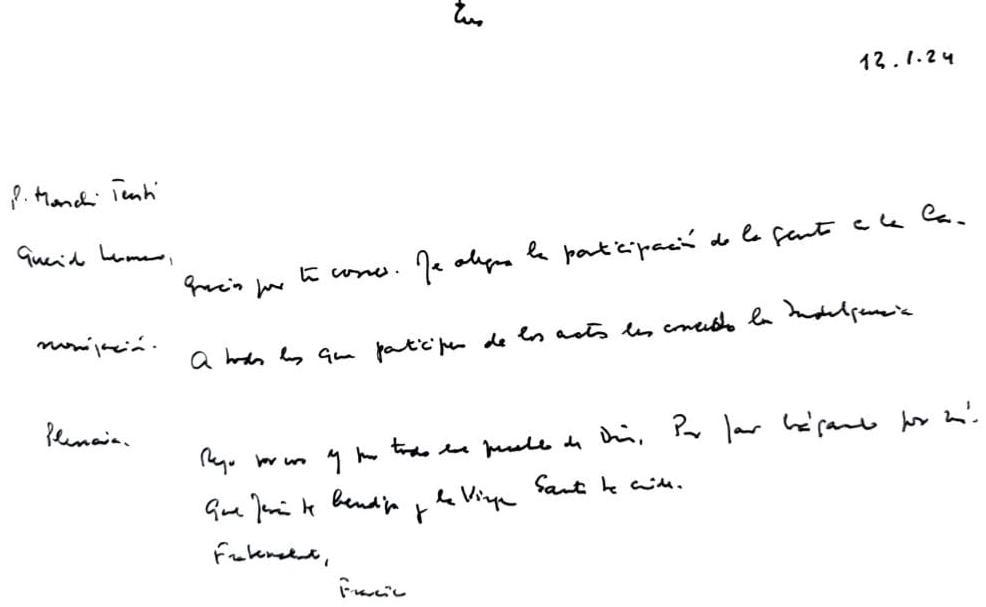 12.1.24
P. Mardi Tenti
Querido hermano,
gracias por tu correo. Me alegra la participación de la gente a la Ca-
nonización.
A todos los que participen de los actos les concedo la Indulgencia
Plenaria.
Rezo por vos y por todo ese pueblo de Dios. Por favor háganlo por mí.
Que Jesús te bendiga y la Virgen Santa te cuide.
Fraternalmente,
Francisco